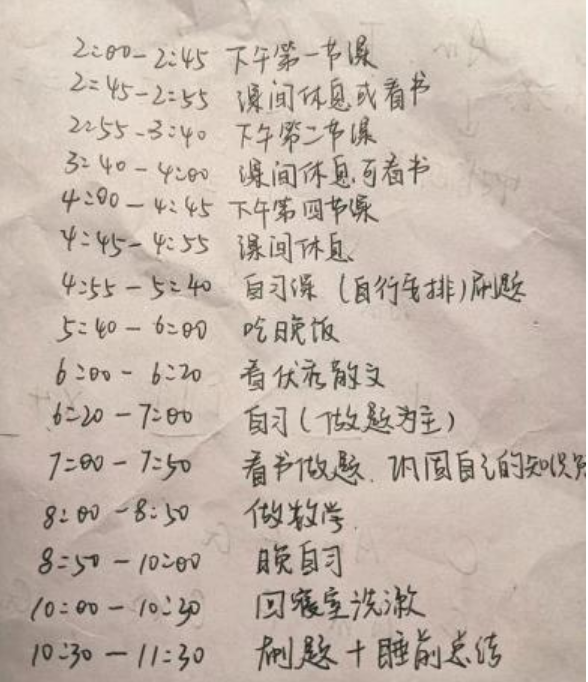 2:00-2:45 下午第一节课
2:45-2:55 课间休息或看书
2:55-3:40 下午第二节课
3:40-4:00 课间休息可看书
4:00-4:45 下午第四节课
4:45-4:55 课间休息
4:55-5:40 自习课(自行安排)刷题
5:40-6:00 吃晚饭
6:00-6:20 看优秀散文
6:20-7:00 自习(做题为主)
7:00-7:50 看书做题、巩固自己的知识
8:00-8:50 做数学
8:50-10:00 晚自习
10:00-10:30 回寝室洗漱
10:30-11:30 刷题+睡前总结